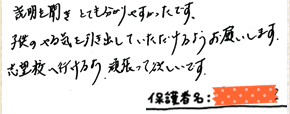 説明を聞きとても分かりやすかったです。
子供のやる気を引き出していただけるようお願いします。
志望校へ行けるよう、頑張って欲しいです。
保護者名: